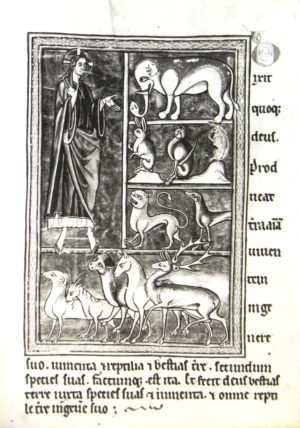 D
ixit
quoq;
deus.
Prod
ucat
t̄ra aīam
viven
tem
in ge
nere
suo. iumenta ⁊ reptilia ⁊ bestias t̄re. secundum
species suas. factumq; est ita. Et fecit deus bestias
terre iuxta species suas ⁊ iumenta. ⁊ omne repti
le t̄re in genere suo;